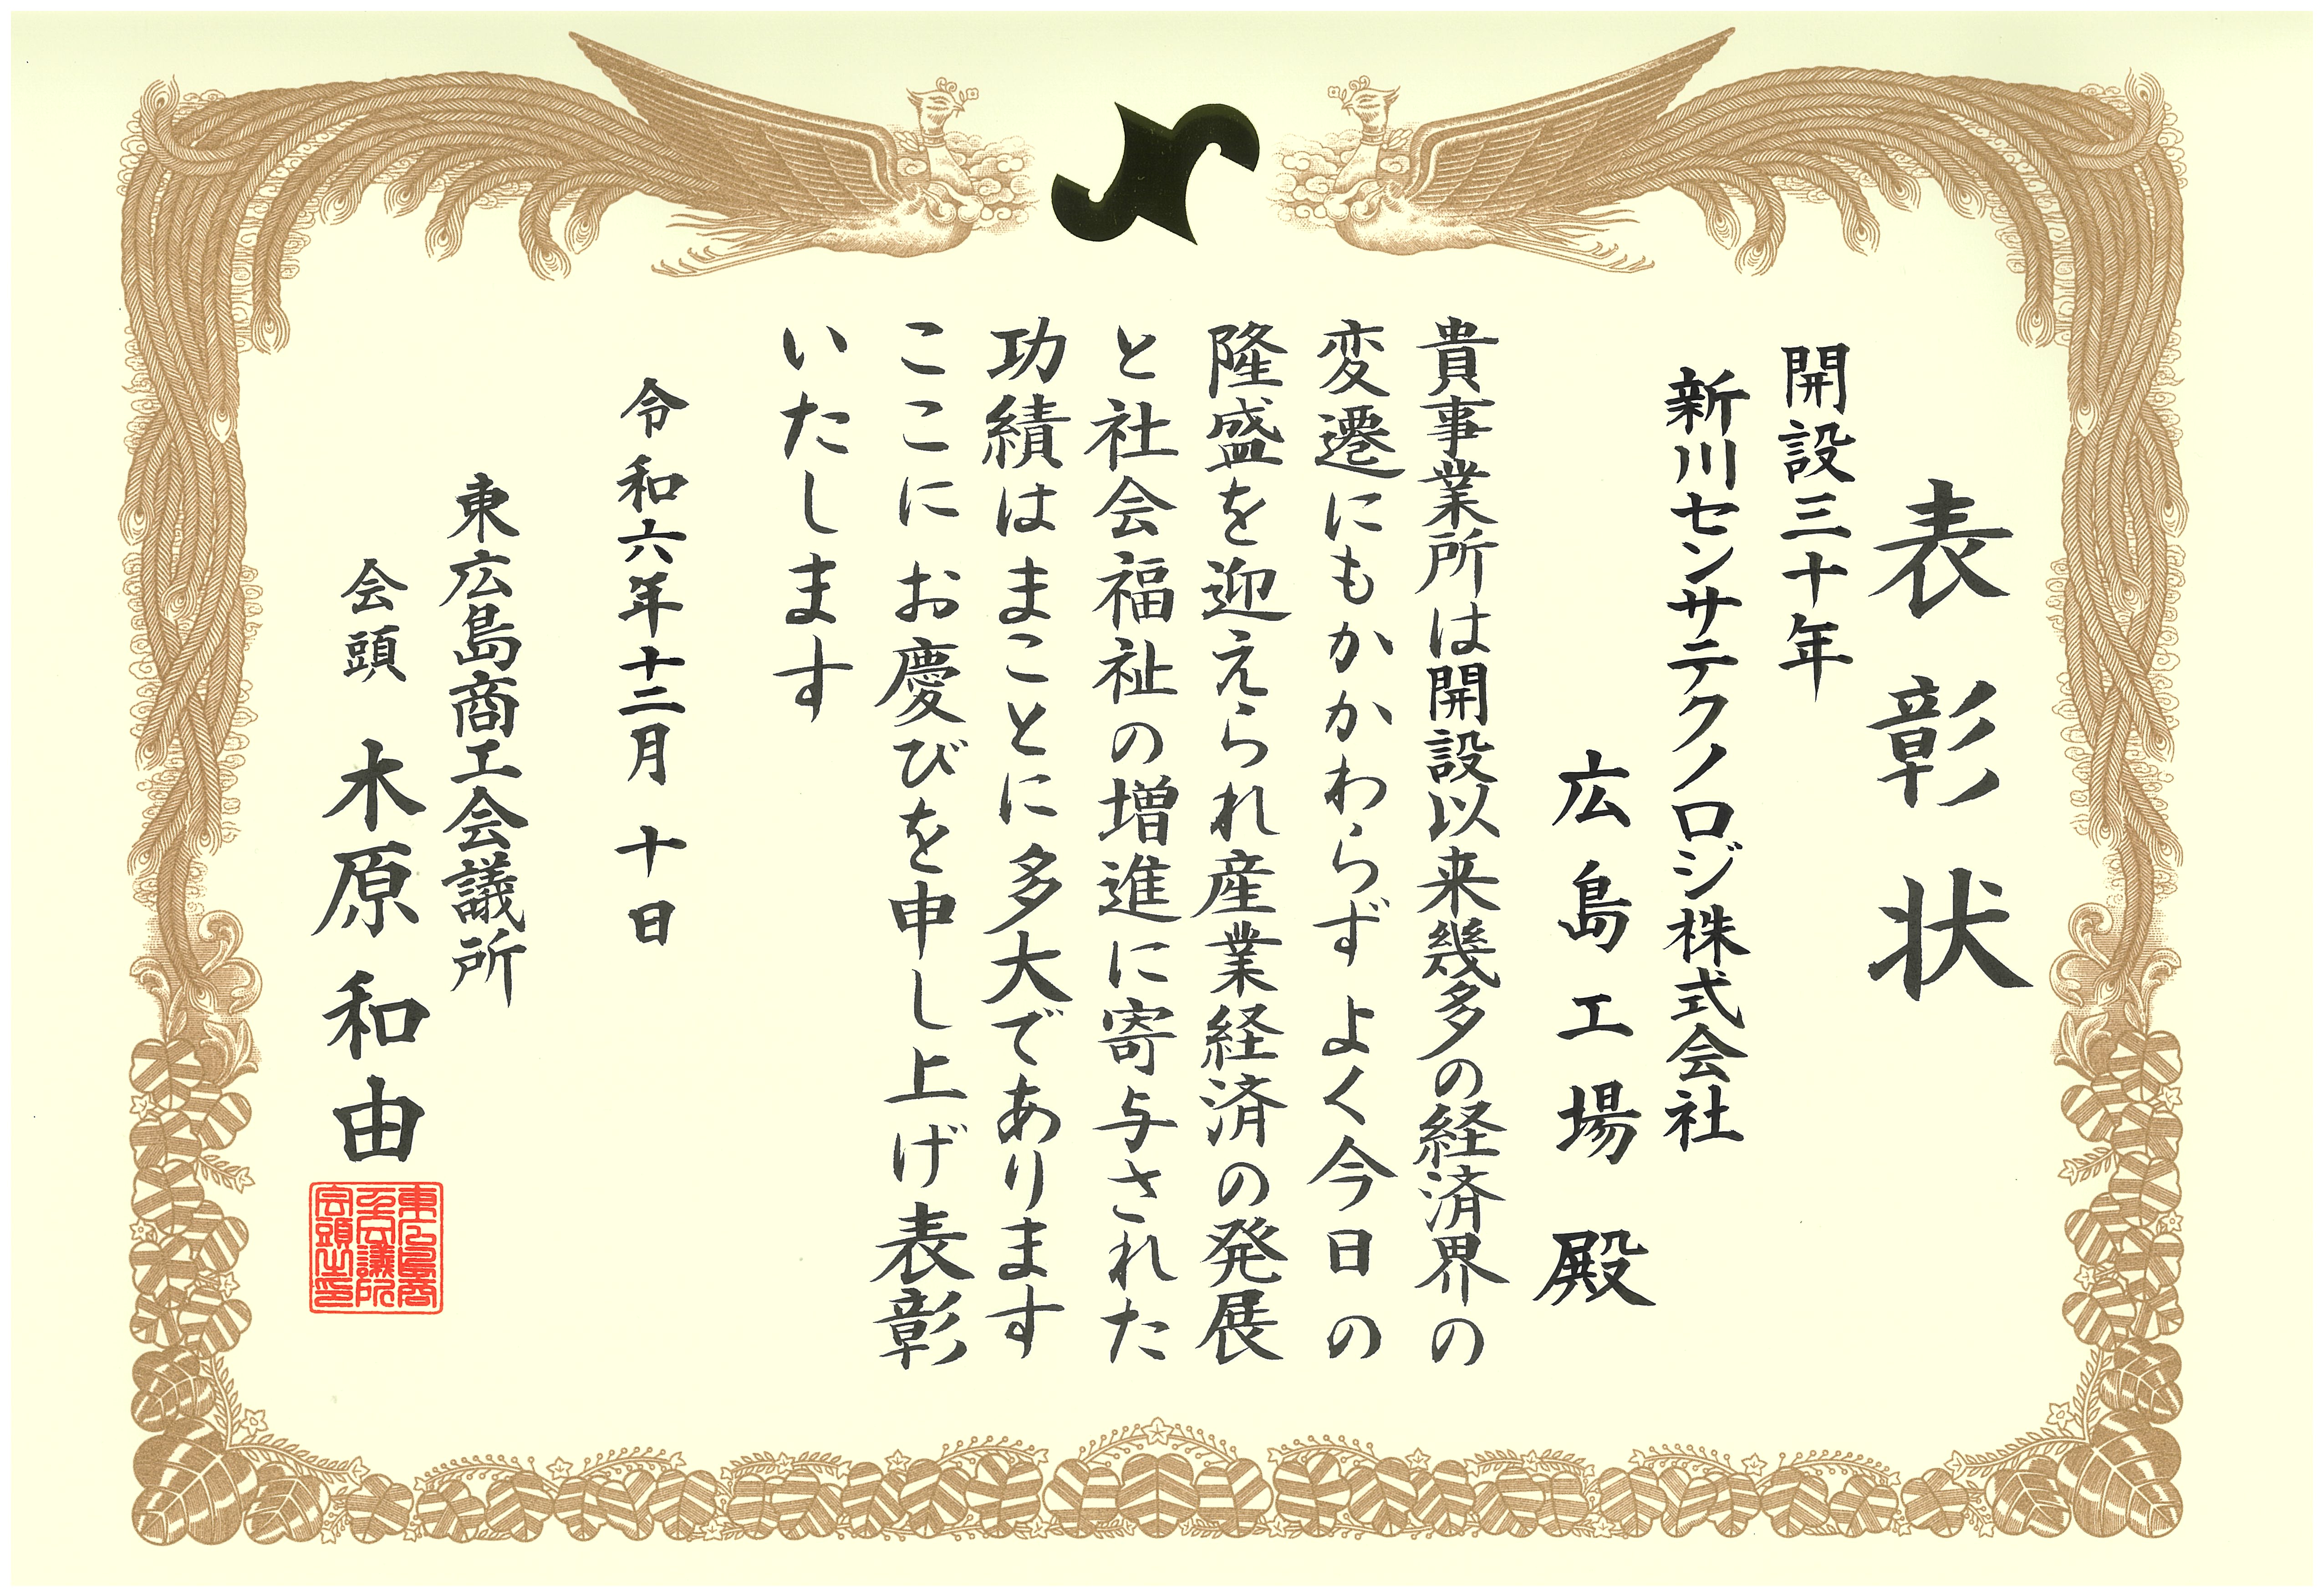 表彰状
開設三十年
新川センサテクノロジ株式会社
広島工場 殿
貴事業所は開設以来幾多の経済界の
変遷にもかかわらず よく今日の
隆盛を迎えられ産業経済の発展
と社会福祉の増進に寄与された
功績は まことに多大であります
ここに お慶びを申し上げ表彰
いたします
令和六年十二月 十日
東広島商工会議所
会頭 木原和由
東広島商
工会議所
会頭之印